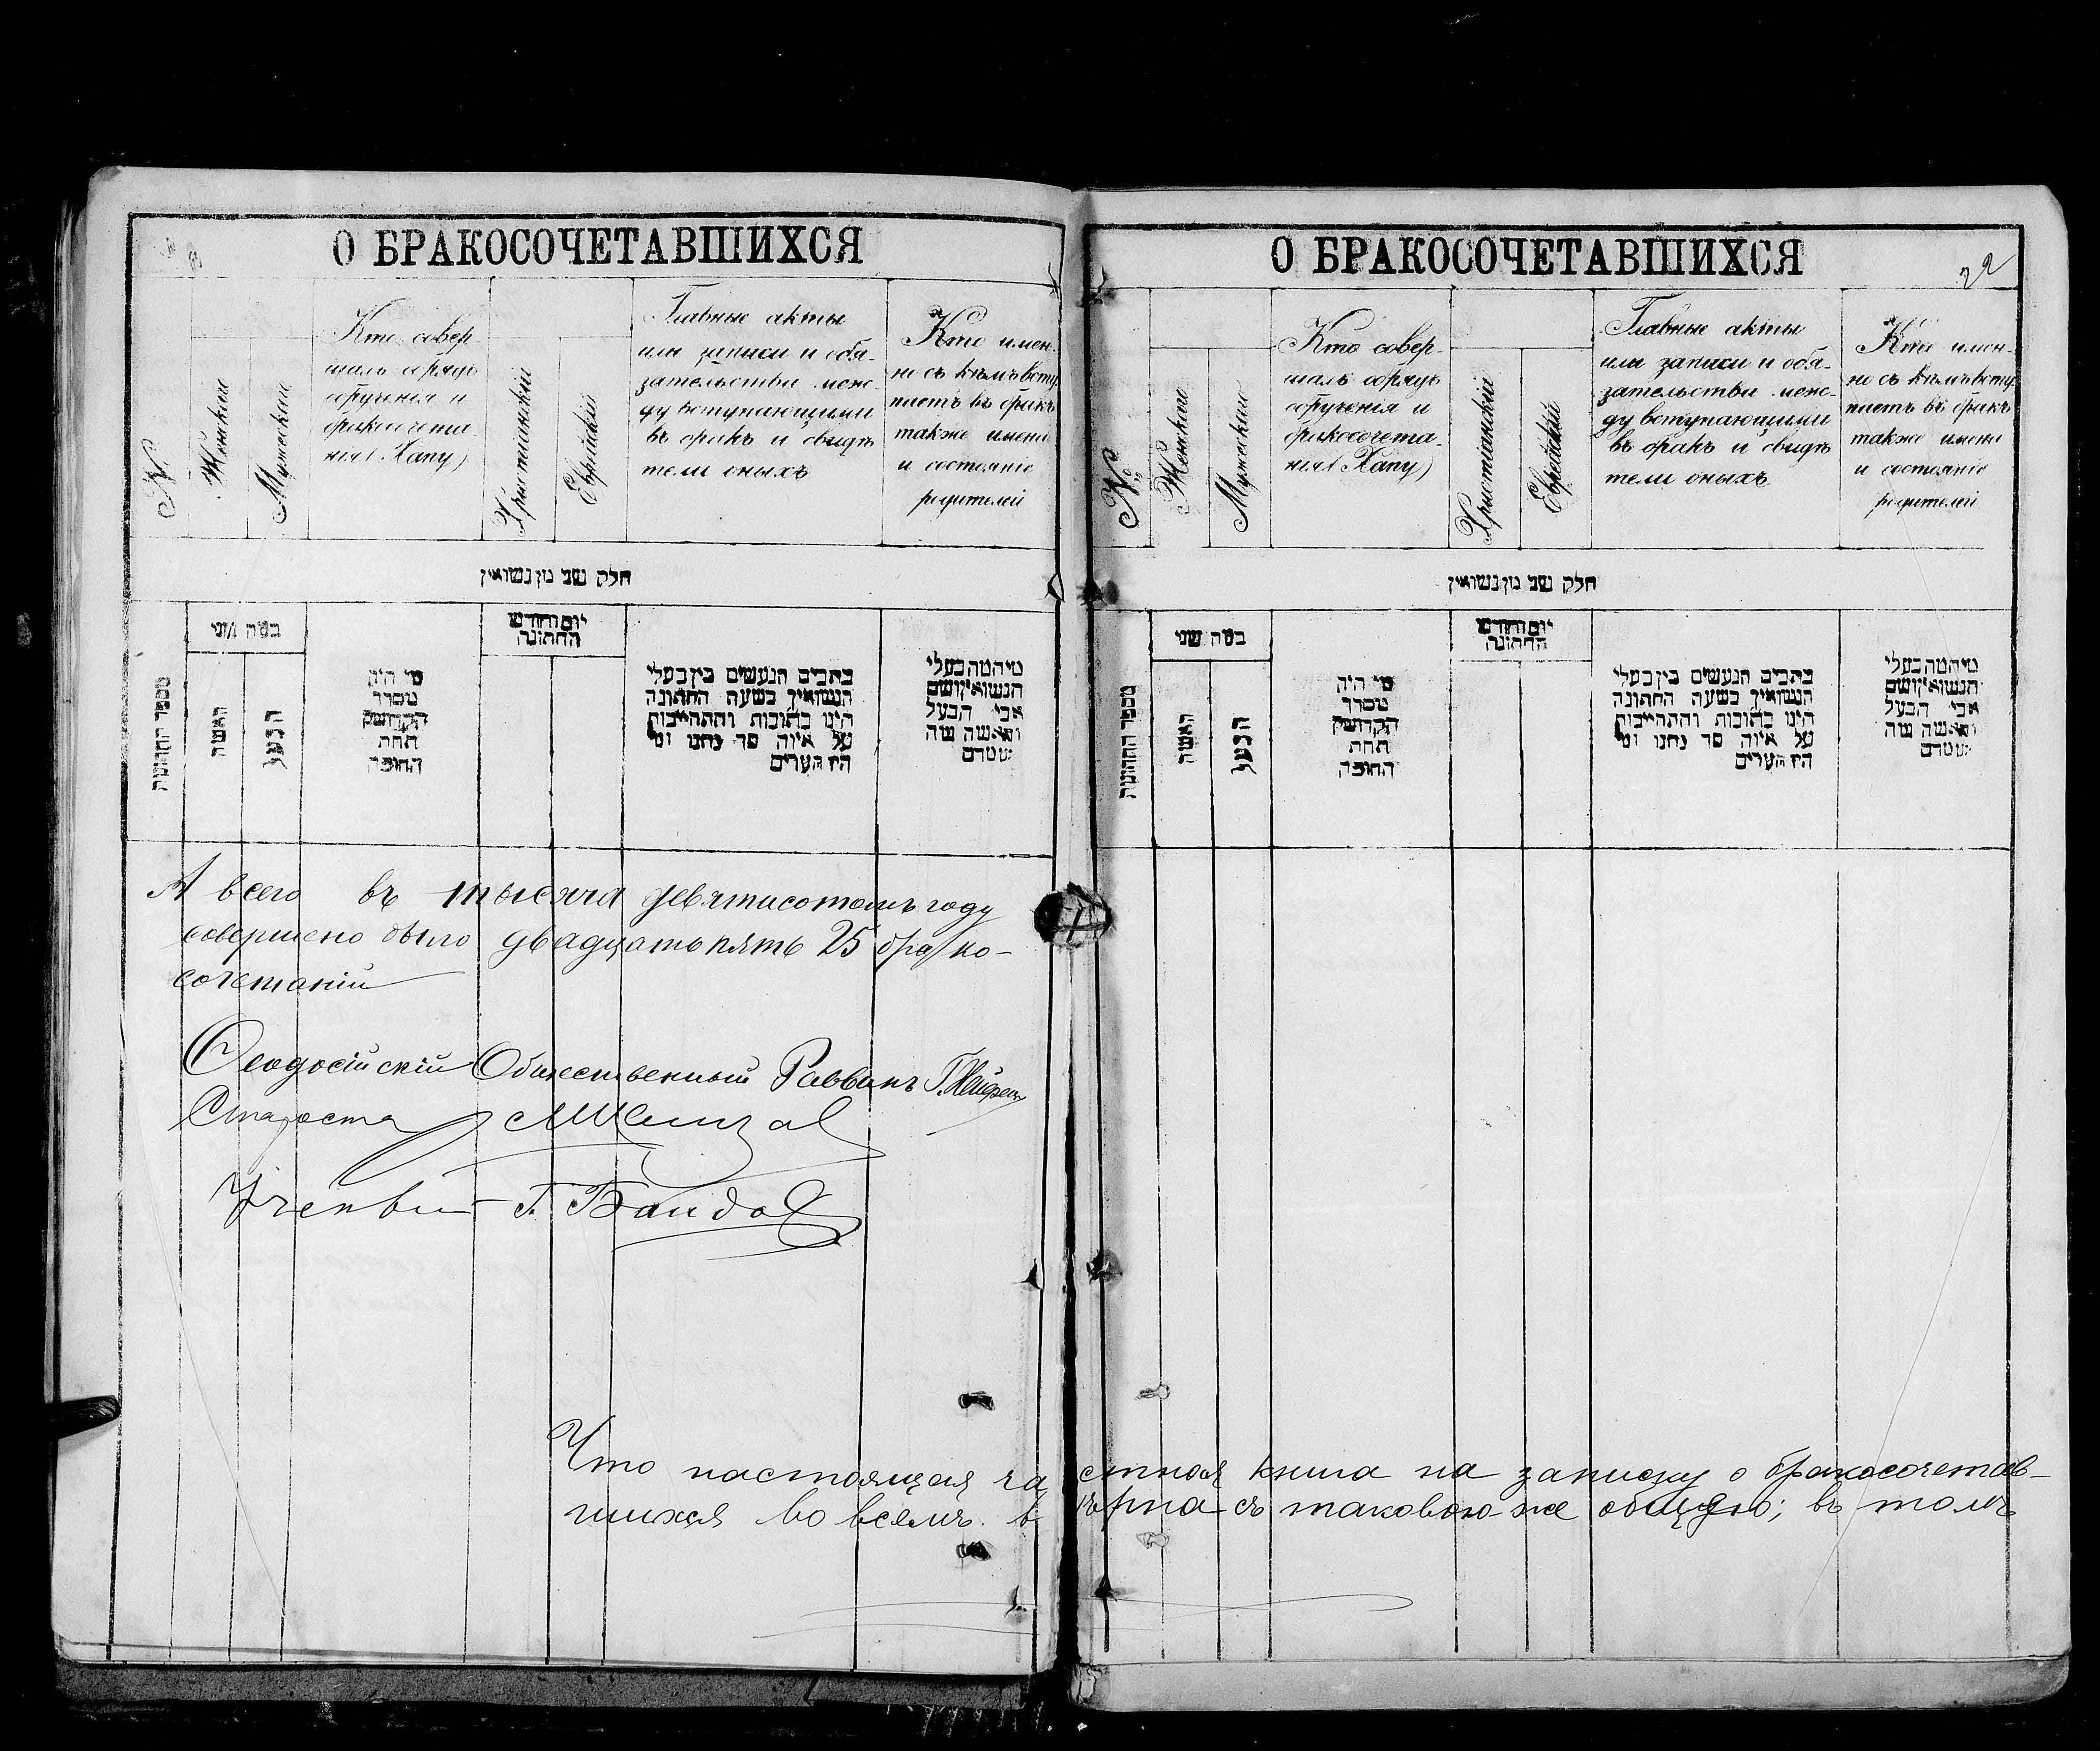 О БРАКОСОЧЕТАВШИХСЯ
№
Женскаго
Мужескаго
Кто совер-
шалъ обрядъ
обрученія и
бракосочета-
нія (Хапу)
Христіанскій
Еврейскій
Главные акты
или записи и обя-
зательства меж-
ду вступающими
въ бракъ и свидѣ
тели оныхъ
Кто имен-
но съ кѣмъ всту
паетъ въ бракъ
также имена
и состояніе
родителей
חלק שני מן נשואין
מספר החתונות
בטה שני
האשה
הבעל
מי היה
מסדר
הקדושין
תחת
החופה
יום וחודש
החתונה
כתבים הנעשים בין בעלי
הנשואין בשעה החתונה
היינו כתובות והתחייבות
על איזה סך נתנו ומי
היו העדים
מי המה בעלי
הנשואין ושם
אבי הבעל
והאשה ומה
А всего въ тысяча девятисотомъ году
совершено было двадцать пять 25 брако-
сочетаній
Ѳеодосійскій Общественный Раввинъ
Староста
Ученый Г. Бандо
О БРАКОСОЧЕТАВШИХСЯ
22
№
Женскаго
Мужескаго
Кто совер-
шалъ обрядъ
обрученія и
бракосочета-
нія (Хапу)
Христіанскій
Еврейскій
Главные акты
или записи и обя-
зательства меж-
ду вступающими
въ бракъ и свидѣ
тели оныхъ
Кто имен-
но съ кѣмъ всту
паетъ въ бракъ
также имена
и состояніе
родителей
חלק שני מן נשואין
מספר החתונות
בטה שני
האשה
הבעל
מי היה
מסדר
הקדושין
תחת
החופה
יום וחודש
החתונה
כתבים הנעשים בין בעלי
הנשואין בשעה החתונה
היינו כתובות והתחייבות
על איזה סך נתנו ומי
היו העדים
מי המה בעלי
הנשואין ושם
אבי הבעל
והאשה ומה
Что настоящая частная книга на записку о бракосочетав-
шихся во всемъ вѣрна съ таковою-же общею; въ томъ